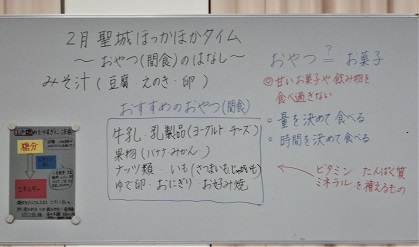 2月 聖城ほっかほかタイム
～おやつ(間食)のはなし～
みそ汁(豆腐・えのき・卵)
おすすめのおやつ(間食)
牛乳 乳製品(ヨーグルト チーズ)
果物(バナナ・みかん)
ナッツ類・いも(さつまいも,じゃがいも)
ゆで卵・おにぎり・お好み焼
おやつ ?= お菓子
◎甘いお菓子や飲み物を
食べ過ぎない
○量を決めて食べる
○時間を決めて食べる
ビタミン たんぱく質
ミネラル を補えるもの
糖分
エネルギー